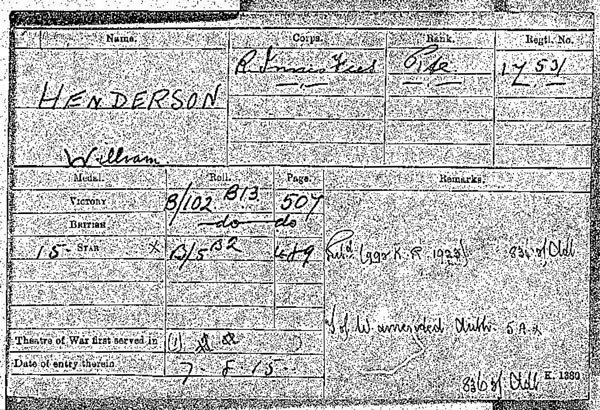 Name. Corps. Rank. Regtl. No.
HENDERSON R Innis Fus Pte 1753
William
Medal. Roll. Page. Remarks.
VICTORY B/102 B13 507
BRITISH do do
15 STAR × B/5 B2 489
(992 K.R. 1923) 836/Adt
Theatre of War first served in (1)
T of W amended Auth. 5 A.
Date of entry therein 7-8-15
K. 1380
836/Adt